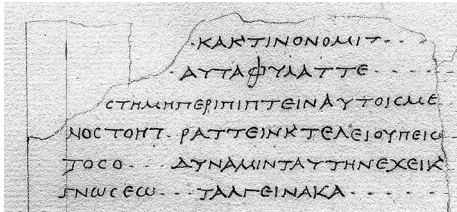 · ΚΑΚΤΙΝΟΝΟΜΙΤ · · · ·
· ΑΥΤΑΦΥΛΑΤΤΕ · · · ·
ϹΤΗΜΗΠΕΡΙΠΙΠΤΕΙΝΑΥΤΟΙϹΜΕ
ΝΟϹΤΟΗΤ · ΡΑΤΤΕΙΝΚΤΕΛΕΙΟΥΠΕΙω
ΤΟϹΟ · · · ΔΥΝΑΜΙΝΤΑΥΤΗΝΕΧΕΙΚ
ΓΝωϹΕω · · · ΤΑΛΓΕΙΝΑΚΑ · · · · ·